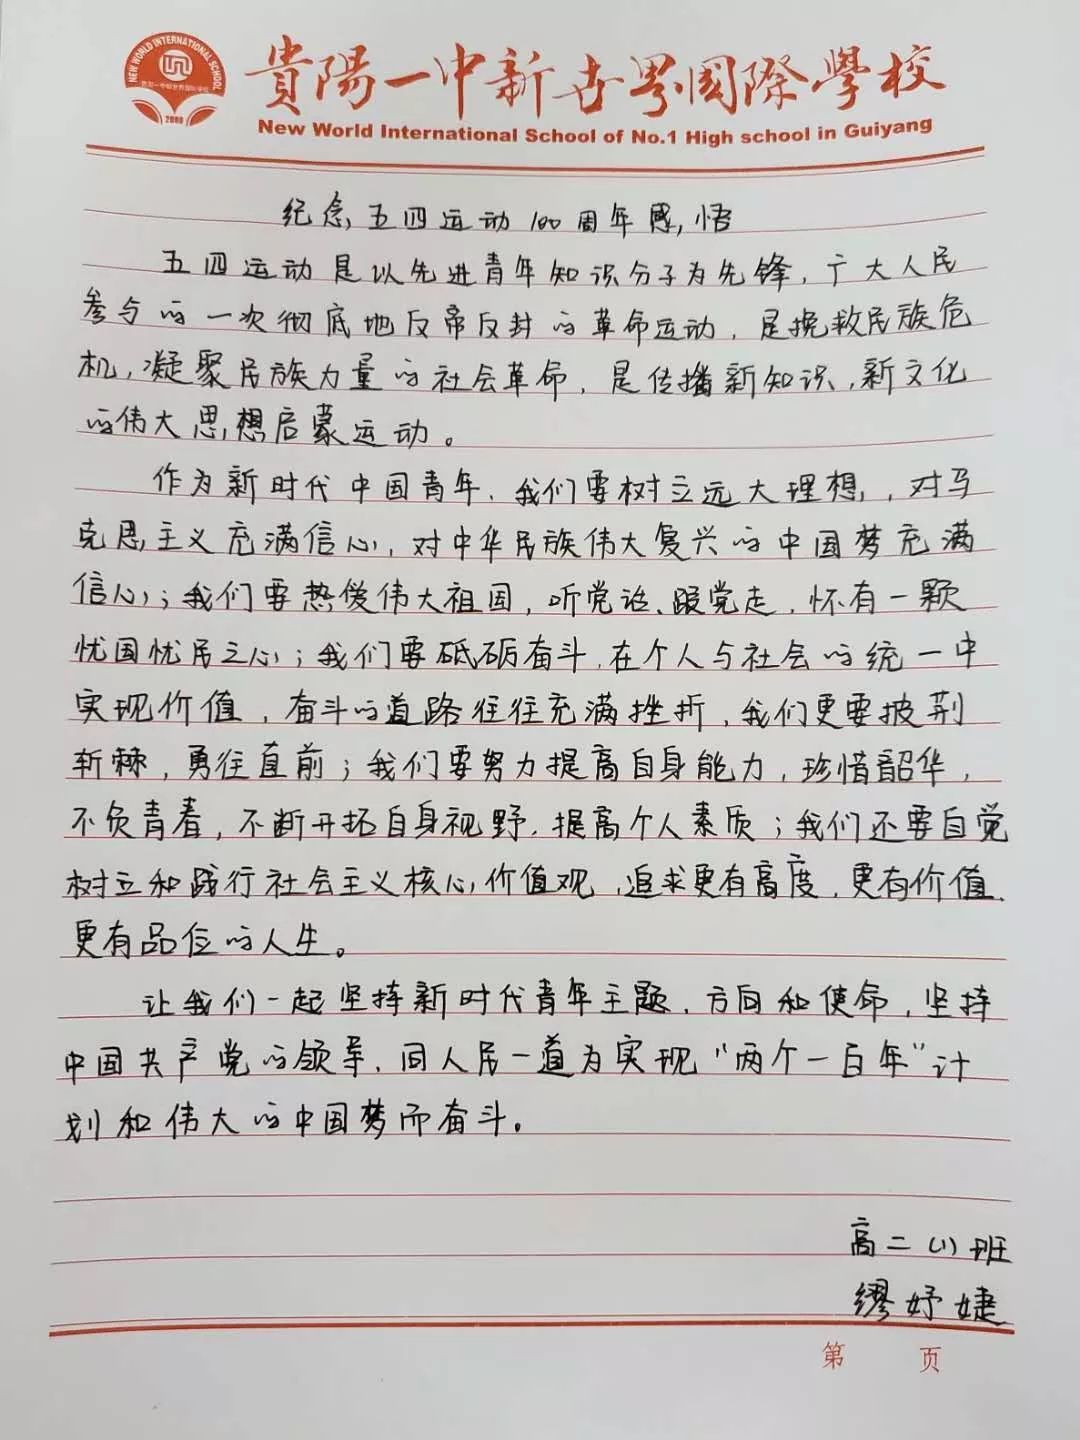 NEW WORLD INTERNATIONAL SCHOOL
貴陽一中新世界國際學校
2000
貴陽一中新世界國際學校
New World International School of No.1 High school in Guiyang
纪念五四运动100周年感悟
五四运动是以先进青年知识分子为先锋,广大人民
参与的一次彻底地反帝反封的革命运动,是挽救民族危
机,凝聚民族力量的社会革命,是传播新知识,新文化
的伟大思想启蒙运动。
作为新时代中国青年,我们要树立远大理想,对马
克思主义充满信心,对中华民族伟大复兴的中国梦充满
信心;我们要热爱伟大祖国,听党话、跟党走,怀有一颗
忧国忧民之心;我们要砥砺奋斗,在个人与社会的统一中
实现价值,奋斗的道路往往充满挫折,我们更要披荆
斩棘,勇往直前;我们要努力提高自身能力,珍惜韶华,
不负青春,不断开拓自身视野,提高个人素质;我们还要自觉
树立和践行社会主义核心价值观,追求更有高度,更有价值、
更有品位的人生。
让我们一起坚持新时代青年主题,方向和使命,坚持
中国共产党的领导,同人民一道为实现“两个一百年”计
划和伟大的中国梦而奋斗。
高二(1)班
缪妤婕
第 页